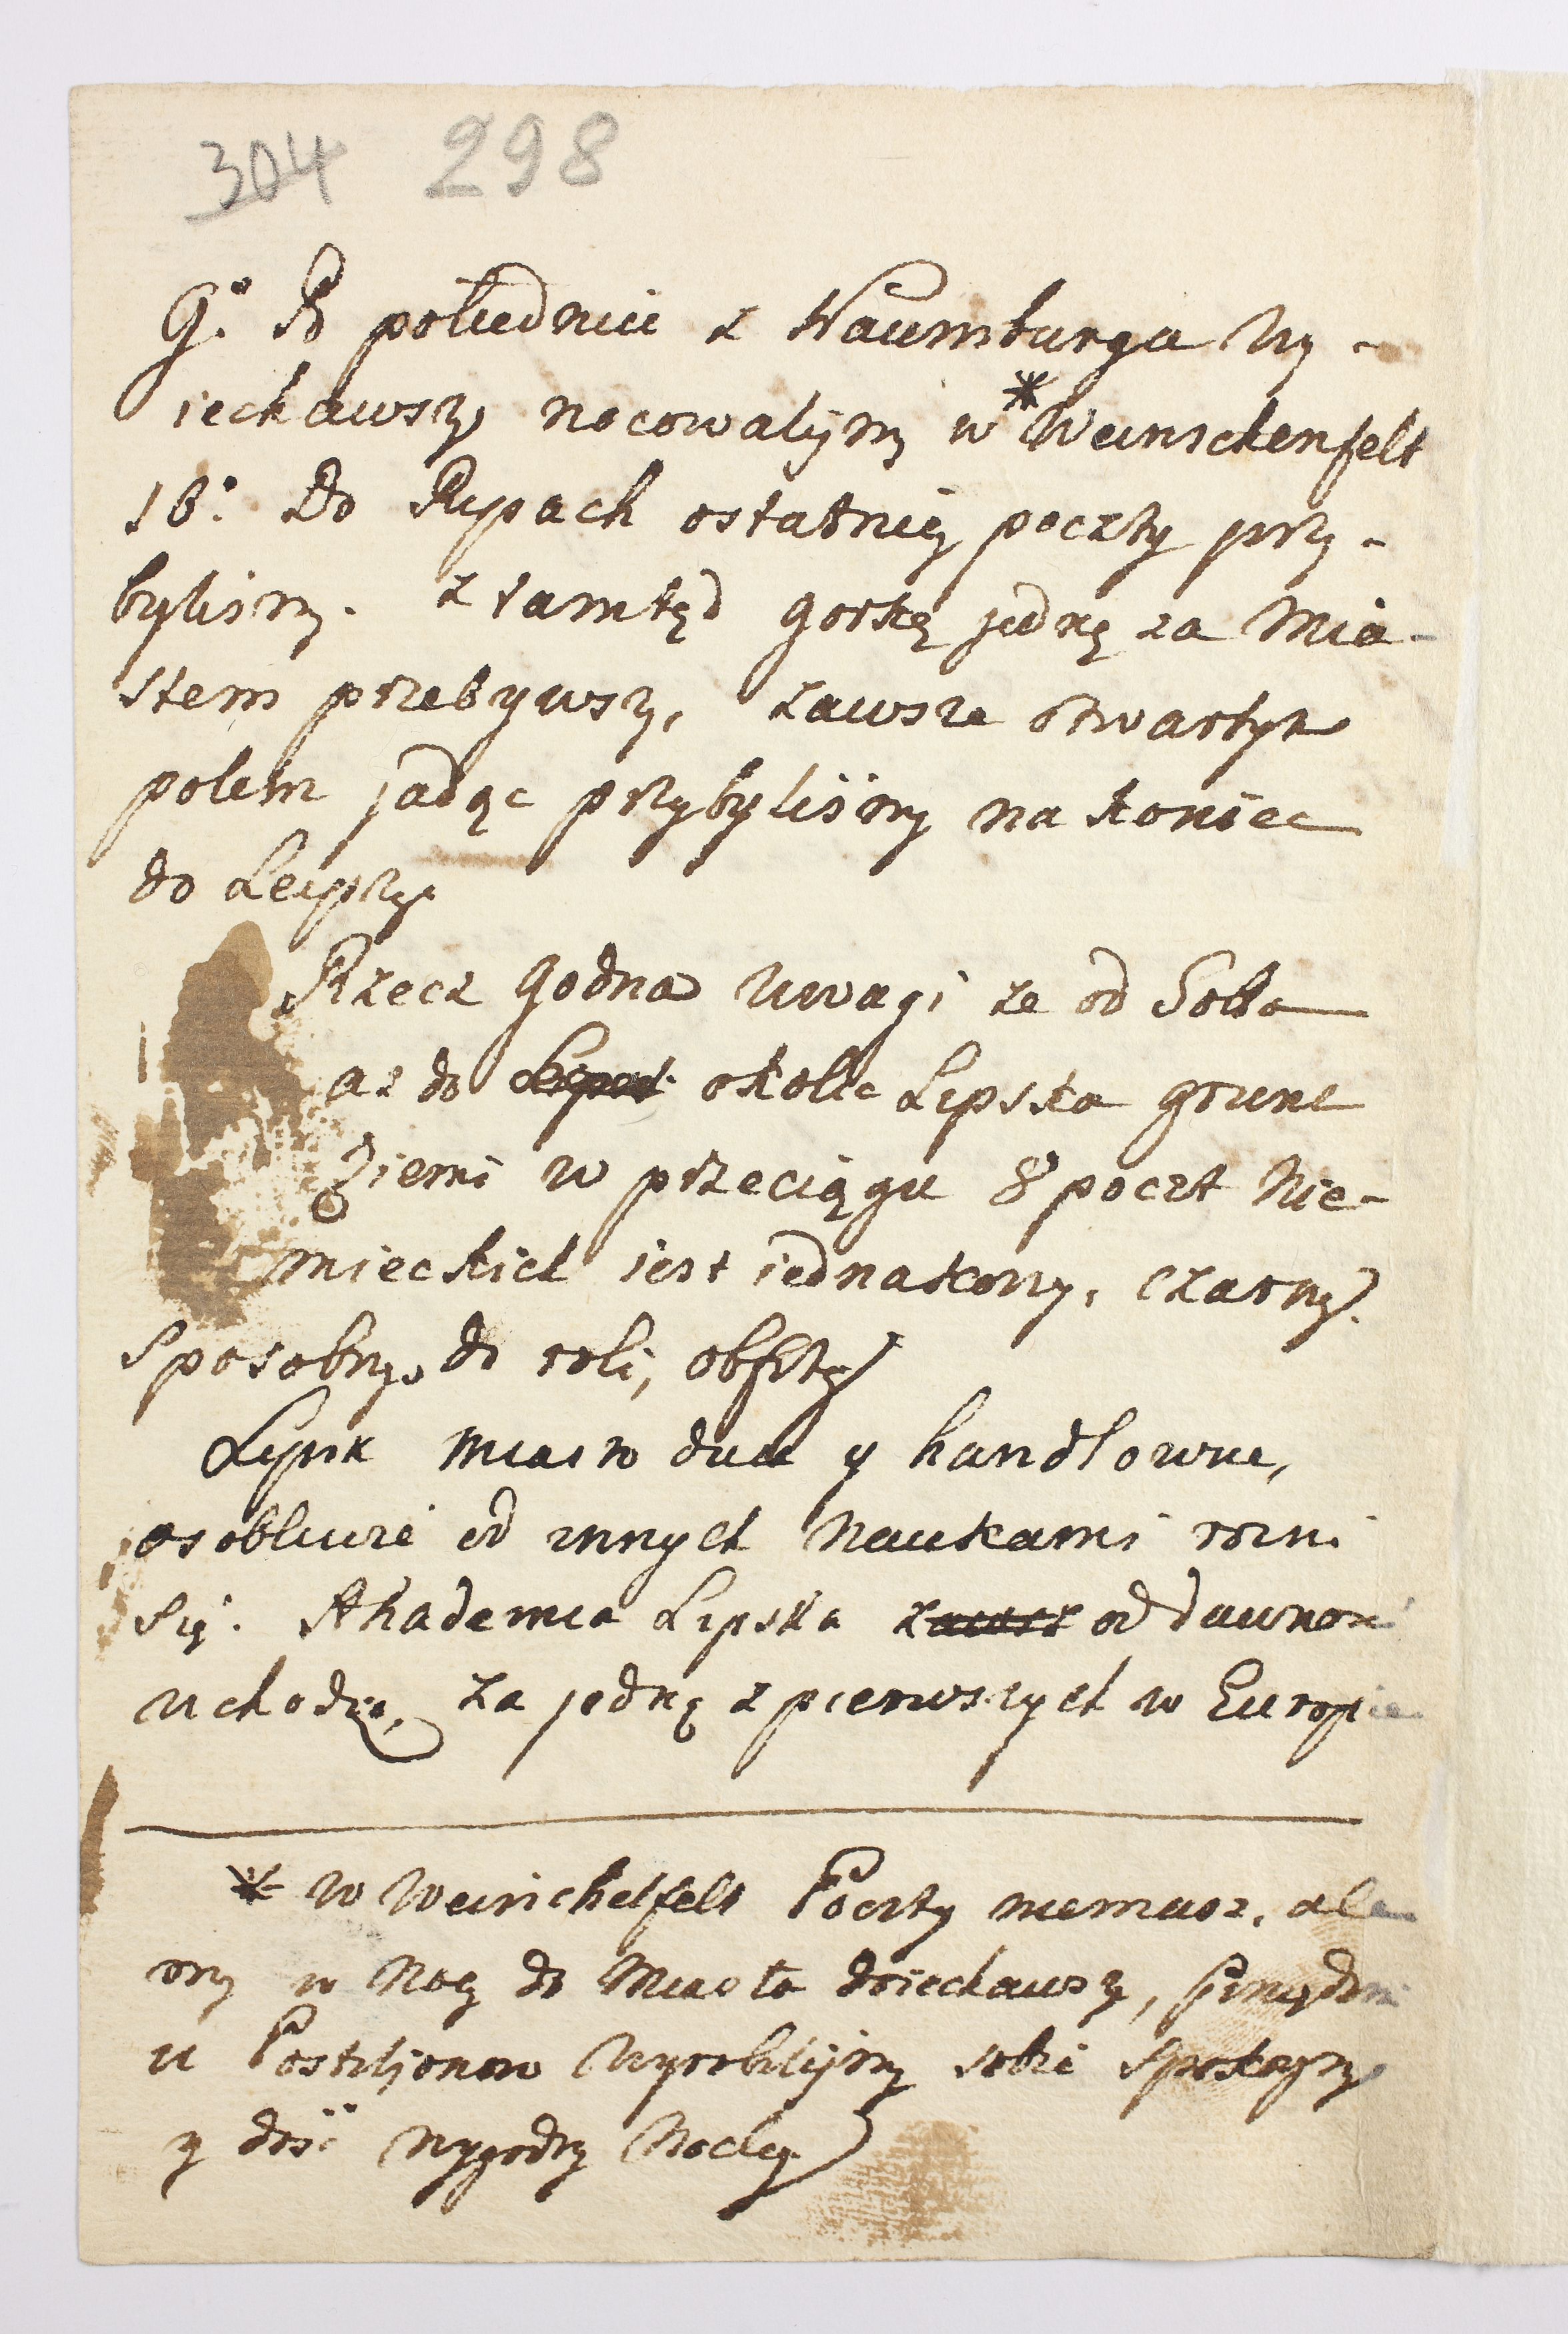 304 298
9° Po południu z Naumburga Wy-
iechawszy nocowaliśmy w * Weinschenfelt
10° Do Rypach ostatniey poczty przy-
byliśmy. z tamtąd gorkę jednę za Mia-
stem przebywszy, zawsze otwartym
polem jadąc przybyliśmy na koniec
do Leipzyk
Rzecz godna Uwagi ze od Gotha
az do okolic Lipska grunt
Ziemi w przeciągu 8 poczt Nie-
mieckich iest iednakowy, czarny.
Sposobny do roli, obfity
Lipsk Miasto duże y handlowne,
osobliwie od innych Naukami rozni
Się. Akademia Lipska od dawności
uchodzi, za jednę z pierwszych w Europie
* w Weinschelfelt Poczty niemasz, ale
my w Nocy do Miasta doiechawszy,
u Postyljonow Wyrobiliśmy sobie Spokoyny
y dość wygodny Nocleg